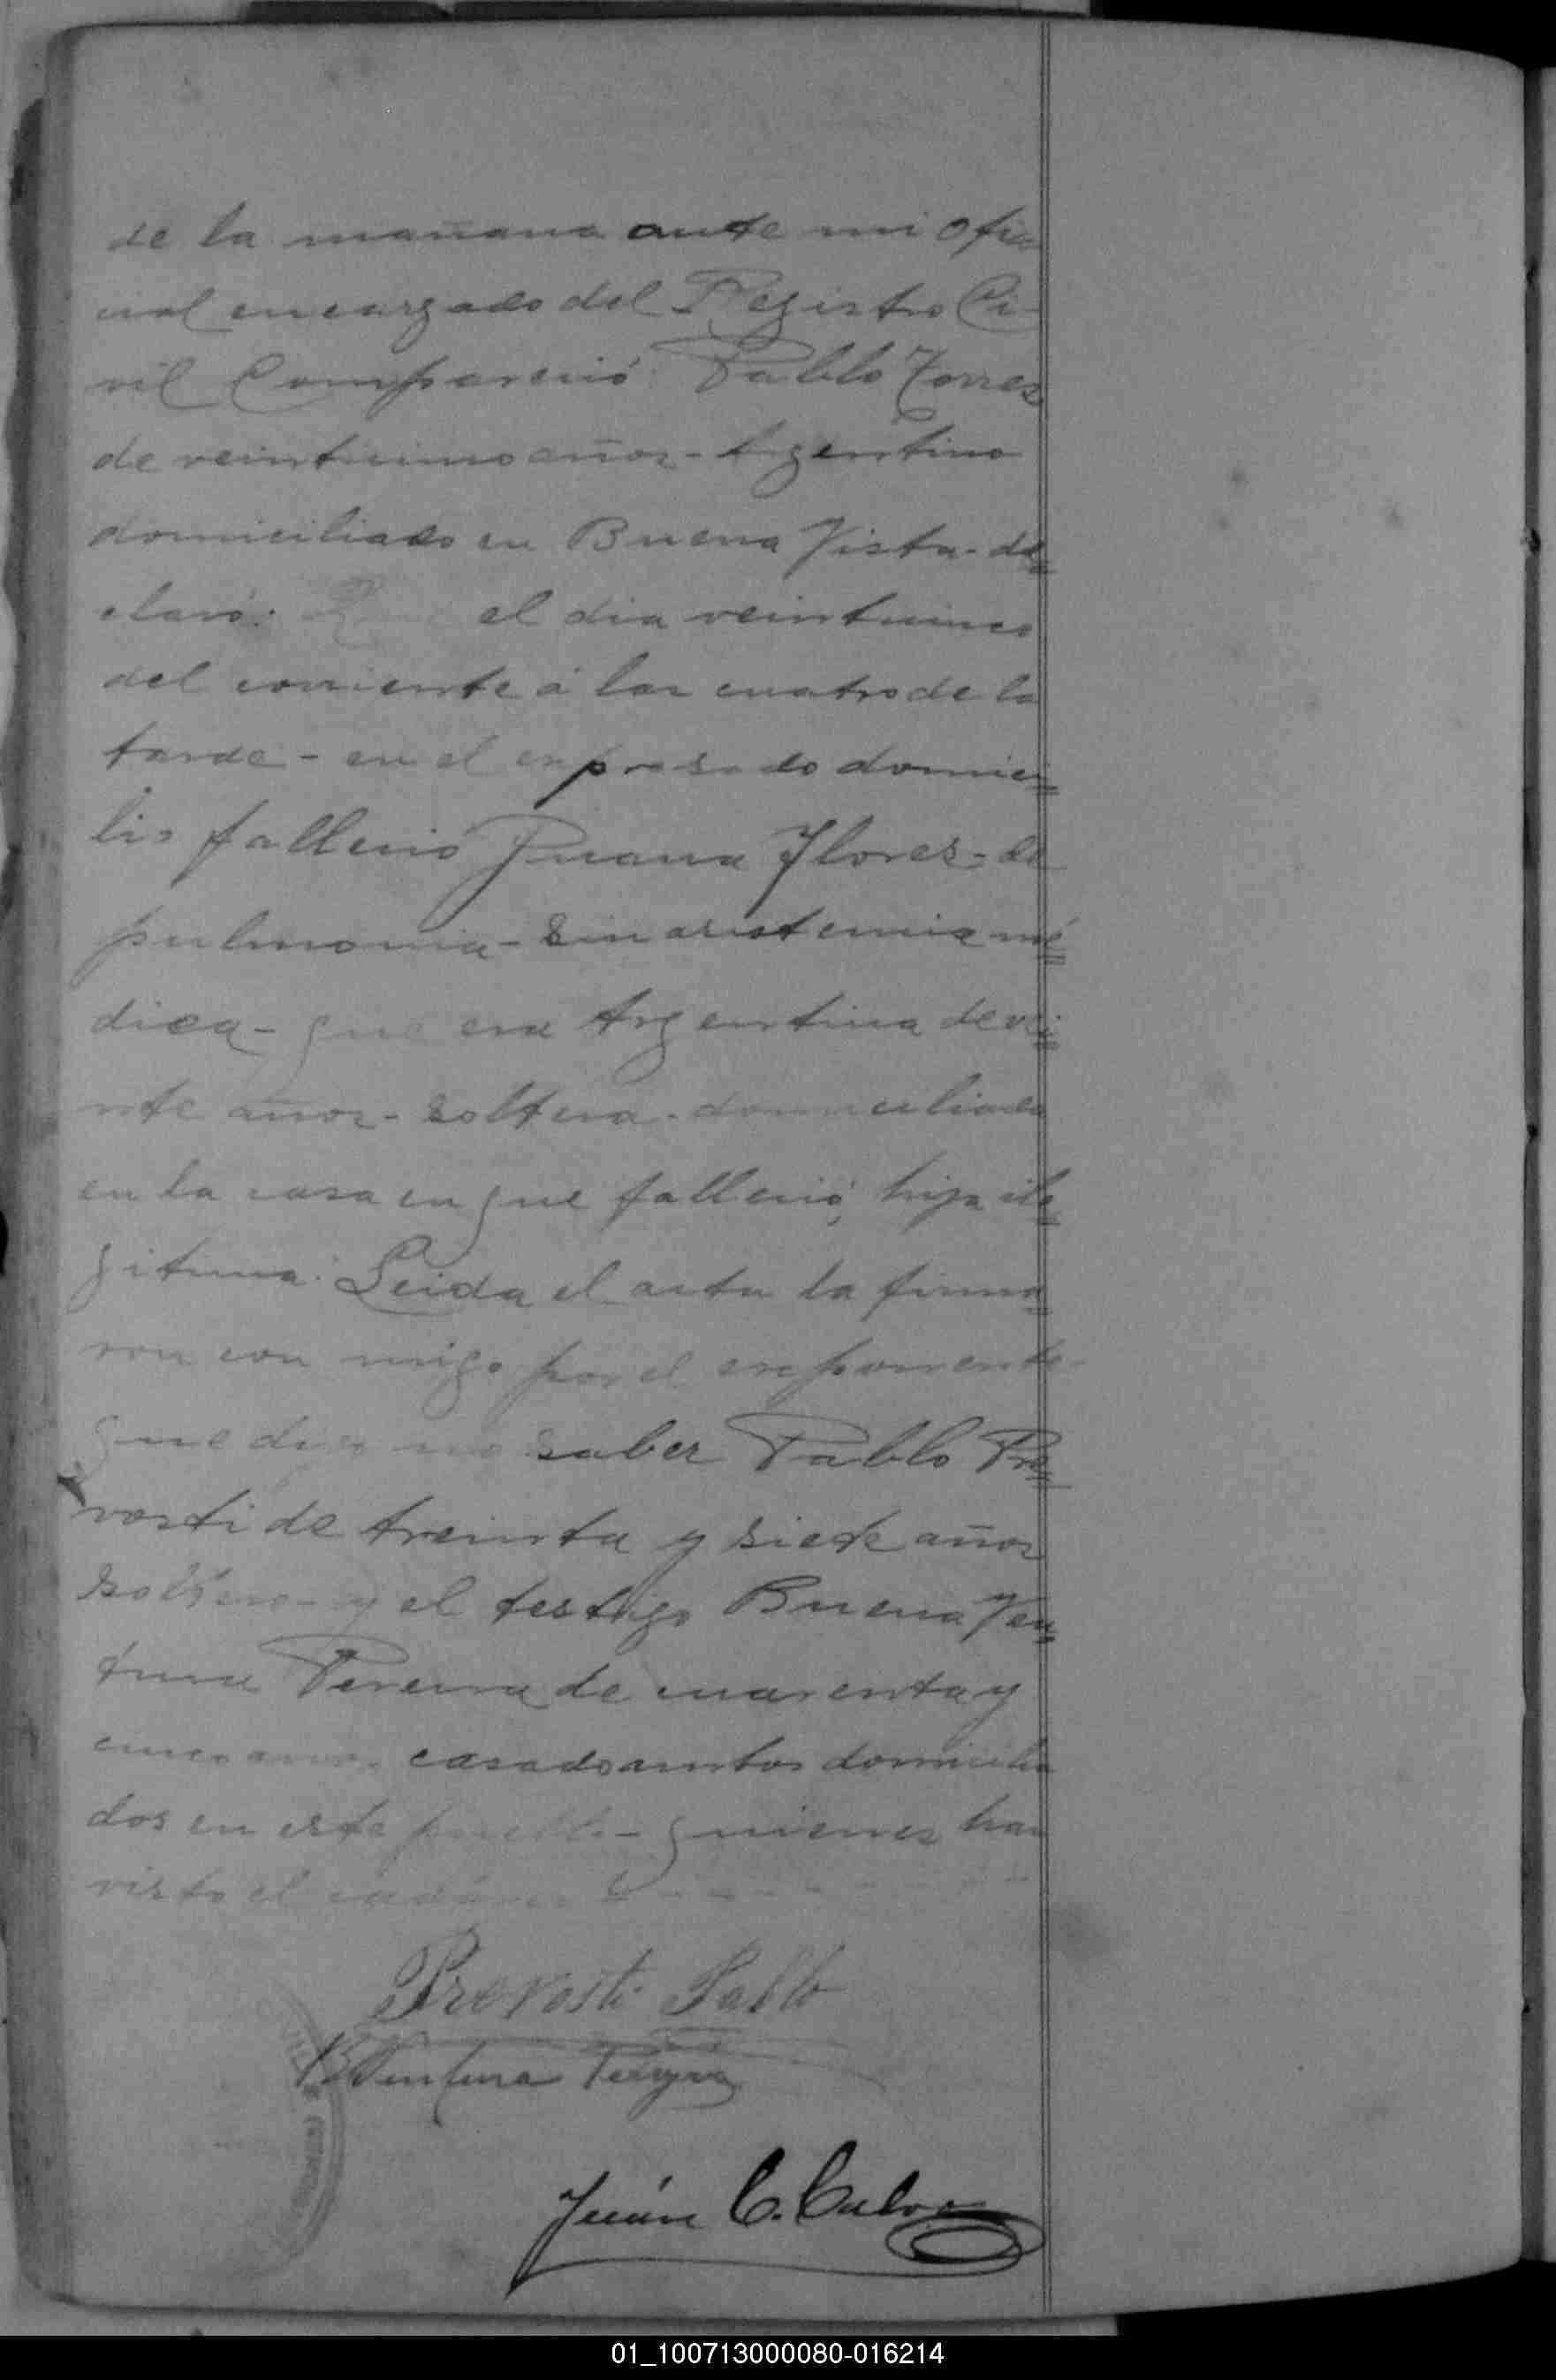 de la mañana ante mi Ofi=
cial encargado del Registro Ci-
vil Compareció Pablo Torres
de veinticinco años - Argentino
domiciliado en Buena Vista - de=
claró: Que el dia veinticinco
del corriente á las cuatro de la
tarde - en el expresado domici=
lio falleció Juana Flores - de
pulmonia - sin asistencia mé=
dica - que era Argentina de vei=
nte años - soltera - domiciliada
en la casa en que falleció, hija ile=
gitima. Leida el acta la firma=
ron con migo por el exponente -
que dijo no saber Pablo Pre=
vosti de treinta y siete años
soltero - y el testigo Buena Ven=
tura Pereira de cuarenta y
cinco años - casado ambos domicilia
dos en este pueblo - quienes han
visto el cadáver
Prevosti Pablo
Ventura Pereyra
Juán C. Calvo
01_100713000080-016214